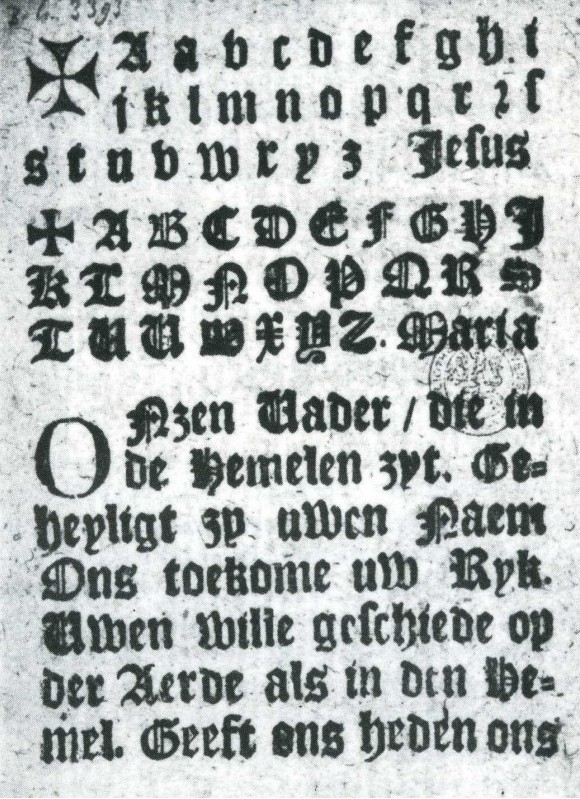 ✠ A a b c d e f g h i
j k l m n o p q r ꝛ ſ
s t u v w x y z Jeſus
✠ A B C D E F G H J
K L M N O P Q R S
T U U W X Y Z. Maria
ONzen Uader / die in
de Hemelen zyt. Ge=
heyligt zy uwen Naem
Ons toekome uw Ryk.
Uwen wille geſchiede op
der Aerde als in den He=
mel. Geeft ons heden ons